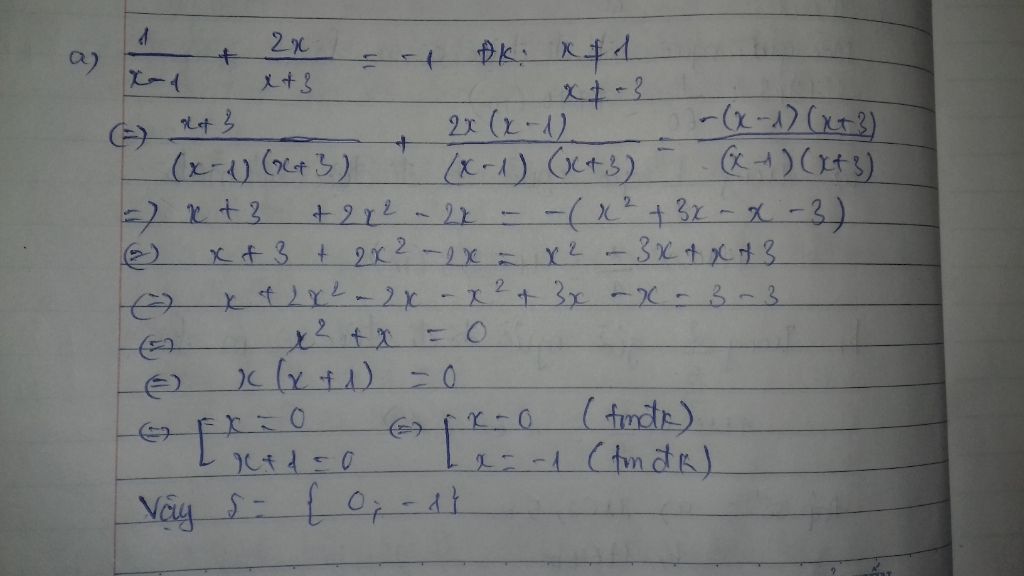 a) 1/(x-1) + 2x/(x+3) = -1 ĐK: x ≠ 1
x ≠ -3
(=) (x+3)/((x-1)(x+3)) + 2x(x-1)/((x-1)(x+3)) = -(x-1)(x+3)/((x-1)(x+3))
=) x+3 + 2x² - 2x = -(x² + 3x - x - 3)
(=) x+3 + 2x² - 2x = x² - 3x + x + 3
(=) x + 2x² - 2x - x² + 3x - x = 3 - 3
(=) x² + x = 0
(=) x(x+1) = 0
(=) [ x = 0 (=) [ x = 0 (tmđk)
x+1 = 0 x = -1 (tmđk)
Vậy S = { 0; -1}